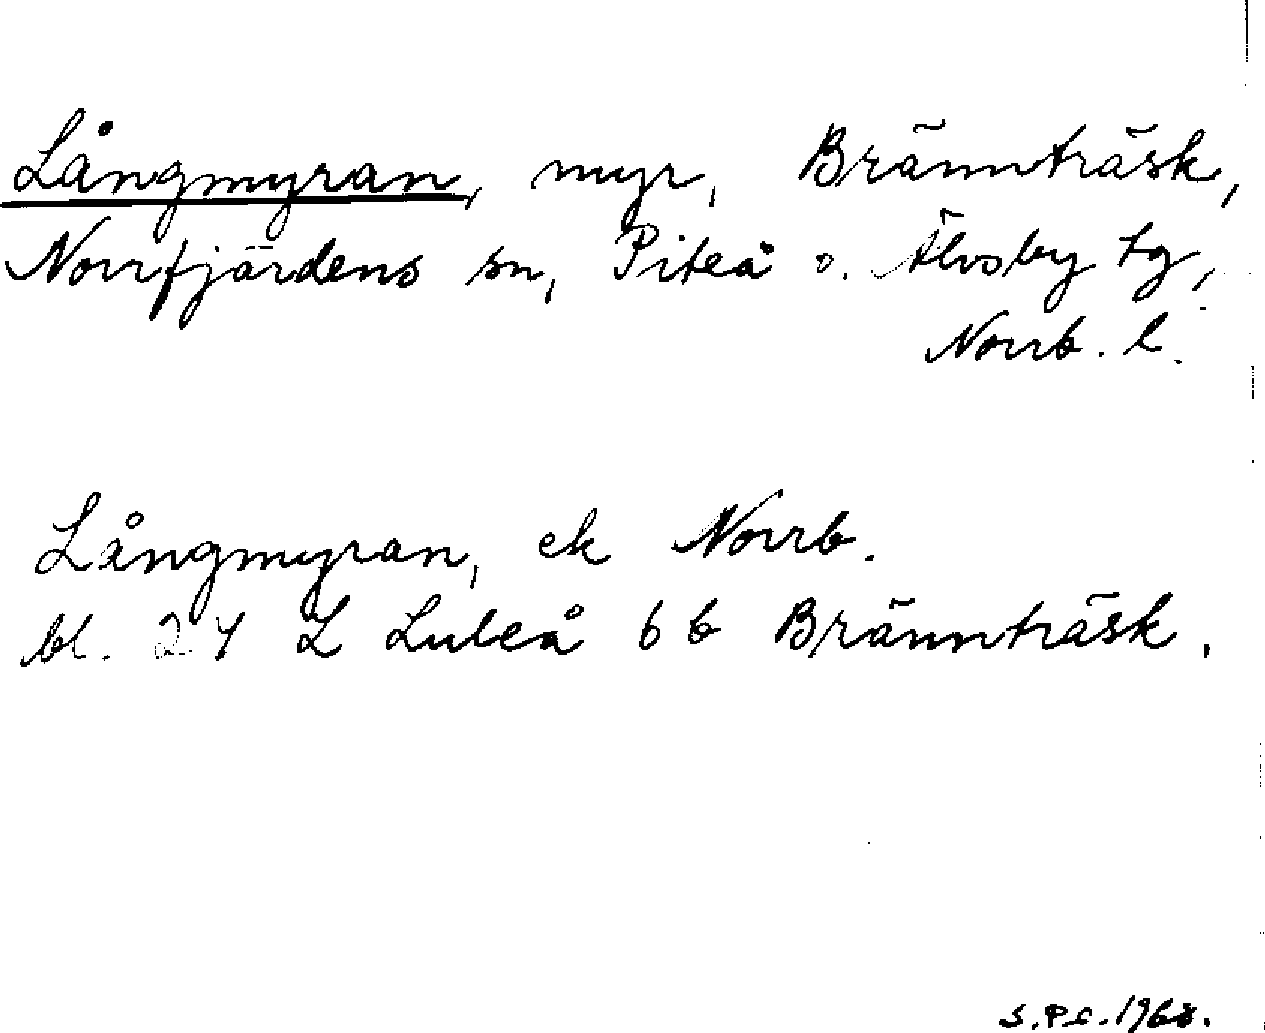 Långmyran, myr, Brännträsk,
Norrfjärdens sn, Piteå o. Älvsby tg,
Norrb. l.
Långmyran, ek Norrb.
bl. 24 L Luleå 6 b Brännträsk.
S.P.C. 1968.